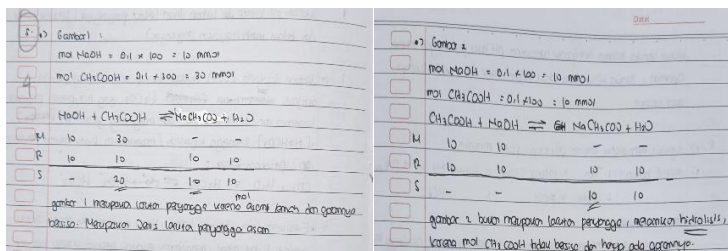 5. •) Gambar 1 :
mol NaOH = 0,1 x 100 = 10 mmol
mol CH3COOH = 0,1 x 300 = 30 mmol
NaOH + CH3COOH ⇌ NaCH3COO + H2O
M 10 30 - -
R 10 10 10 10
S - 20 10 10
mol
gambar 1 merupakan larutan penyangga karena asam lemah dan garamnya
bersisa. Merupakan jenis larutan penyangga asam
•) Gambar 2
mol NaOH = 0,1 x 100 = 10 mmol
mol CH3COOH = 0,1 x 100 = 10 mmol
CH3COOH + NaOH ⇌ NaCH3COO + H2O
M 10 10 - -
R 10 10 10 10
S - - 10 10
gambar 2 bukan merupakan larutan penyangga, melainkan hidrolisis,
karena mol CH3COOH tidak bersisa dan hanya ada garamnya.